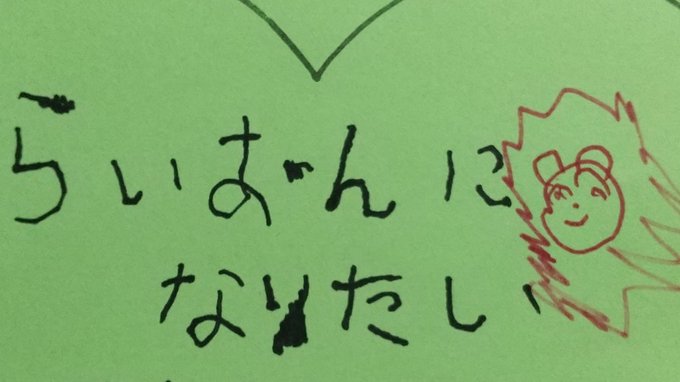 らいおんに
なりたい